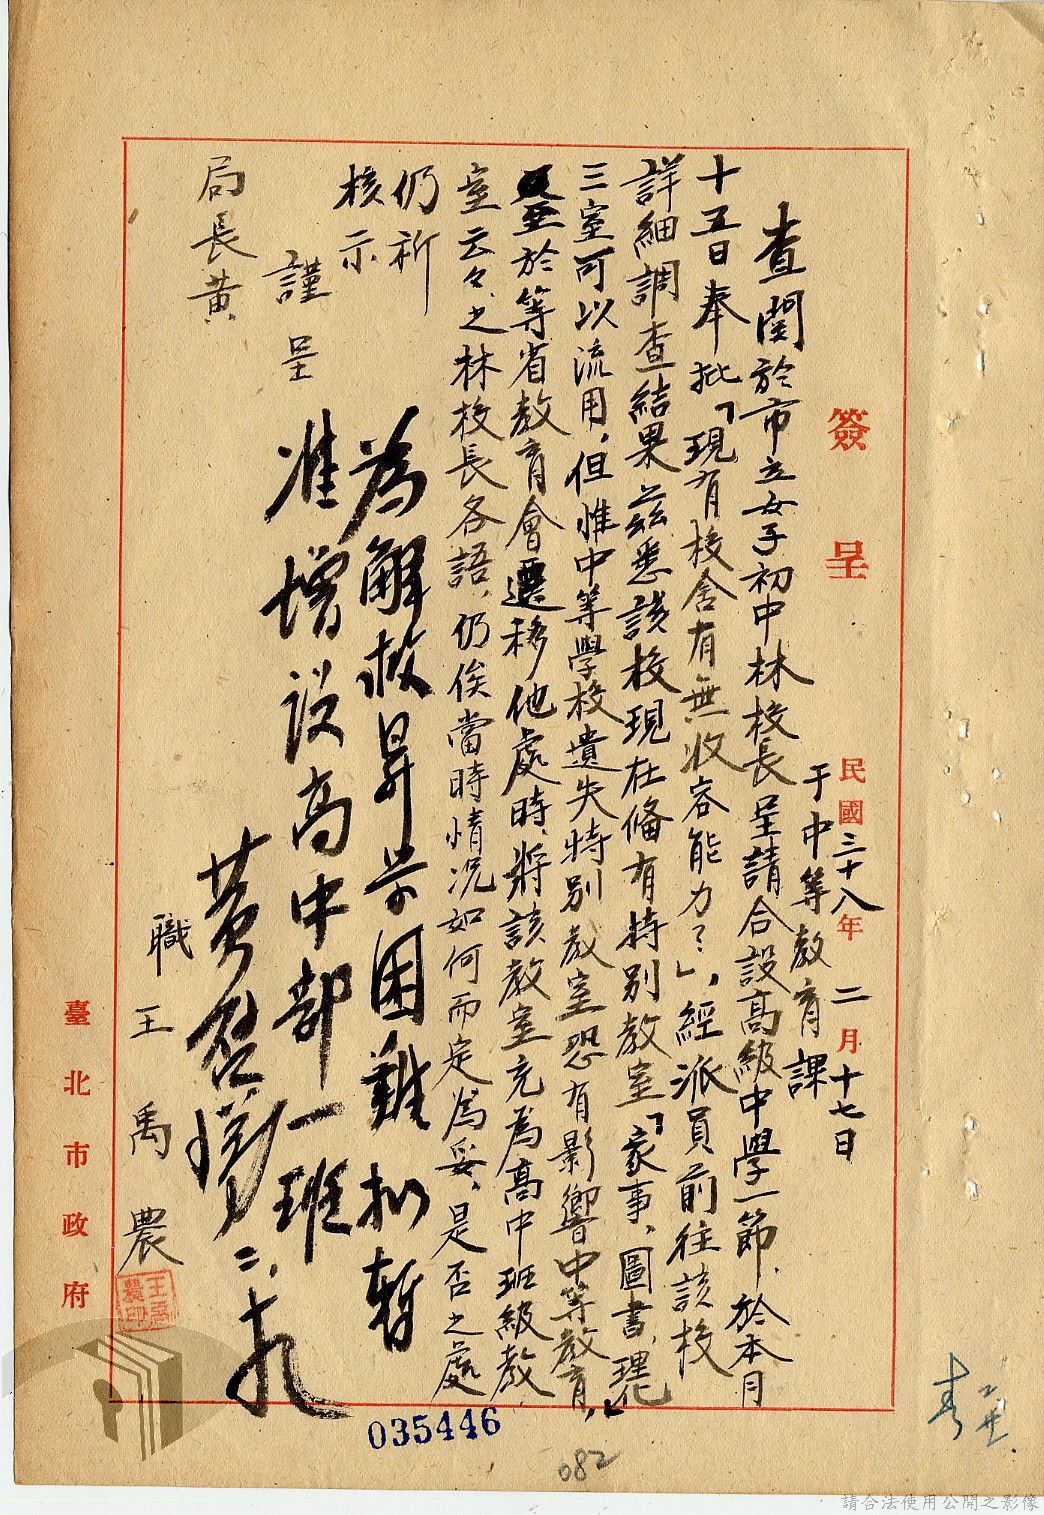 簽呈
民國三十八年二月十七日
于中等教育課
查關於市立女子初中林校長呈請合設高級中學一節、於本月
十五日奉批「現有校舍有無收容能力？」，經派員前往該校
詳細調查結果茲悉該校現在備有特別教室「家事、圖書、理化」
三室可以流用，但惟中等學校遺失特別教室恐有影響中等教育，
於等省教育會遷移他處時，將該教室充為高中班級教
室云々、之林校長各語，仍俟當時情況如何而定為妥，是否之處
仍祈
核示
謹呈
局長黃
為解救昇學困難擬暫
准增設高中部一班
黃啓 二、十九
職王禹農
王禹農印
臺北市政府
035446
082
請合法使用公開之影像